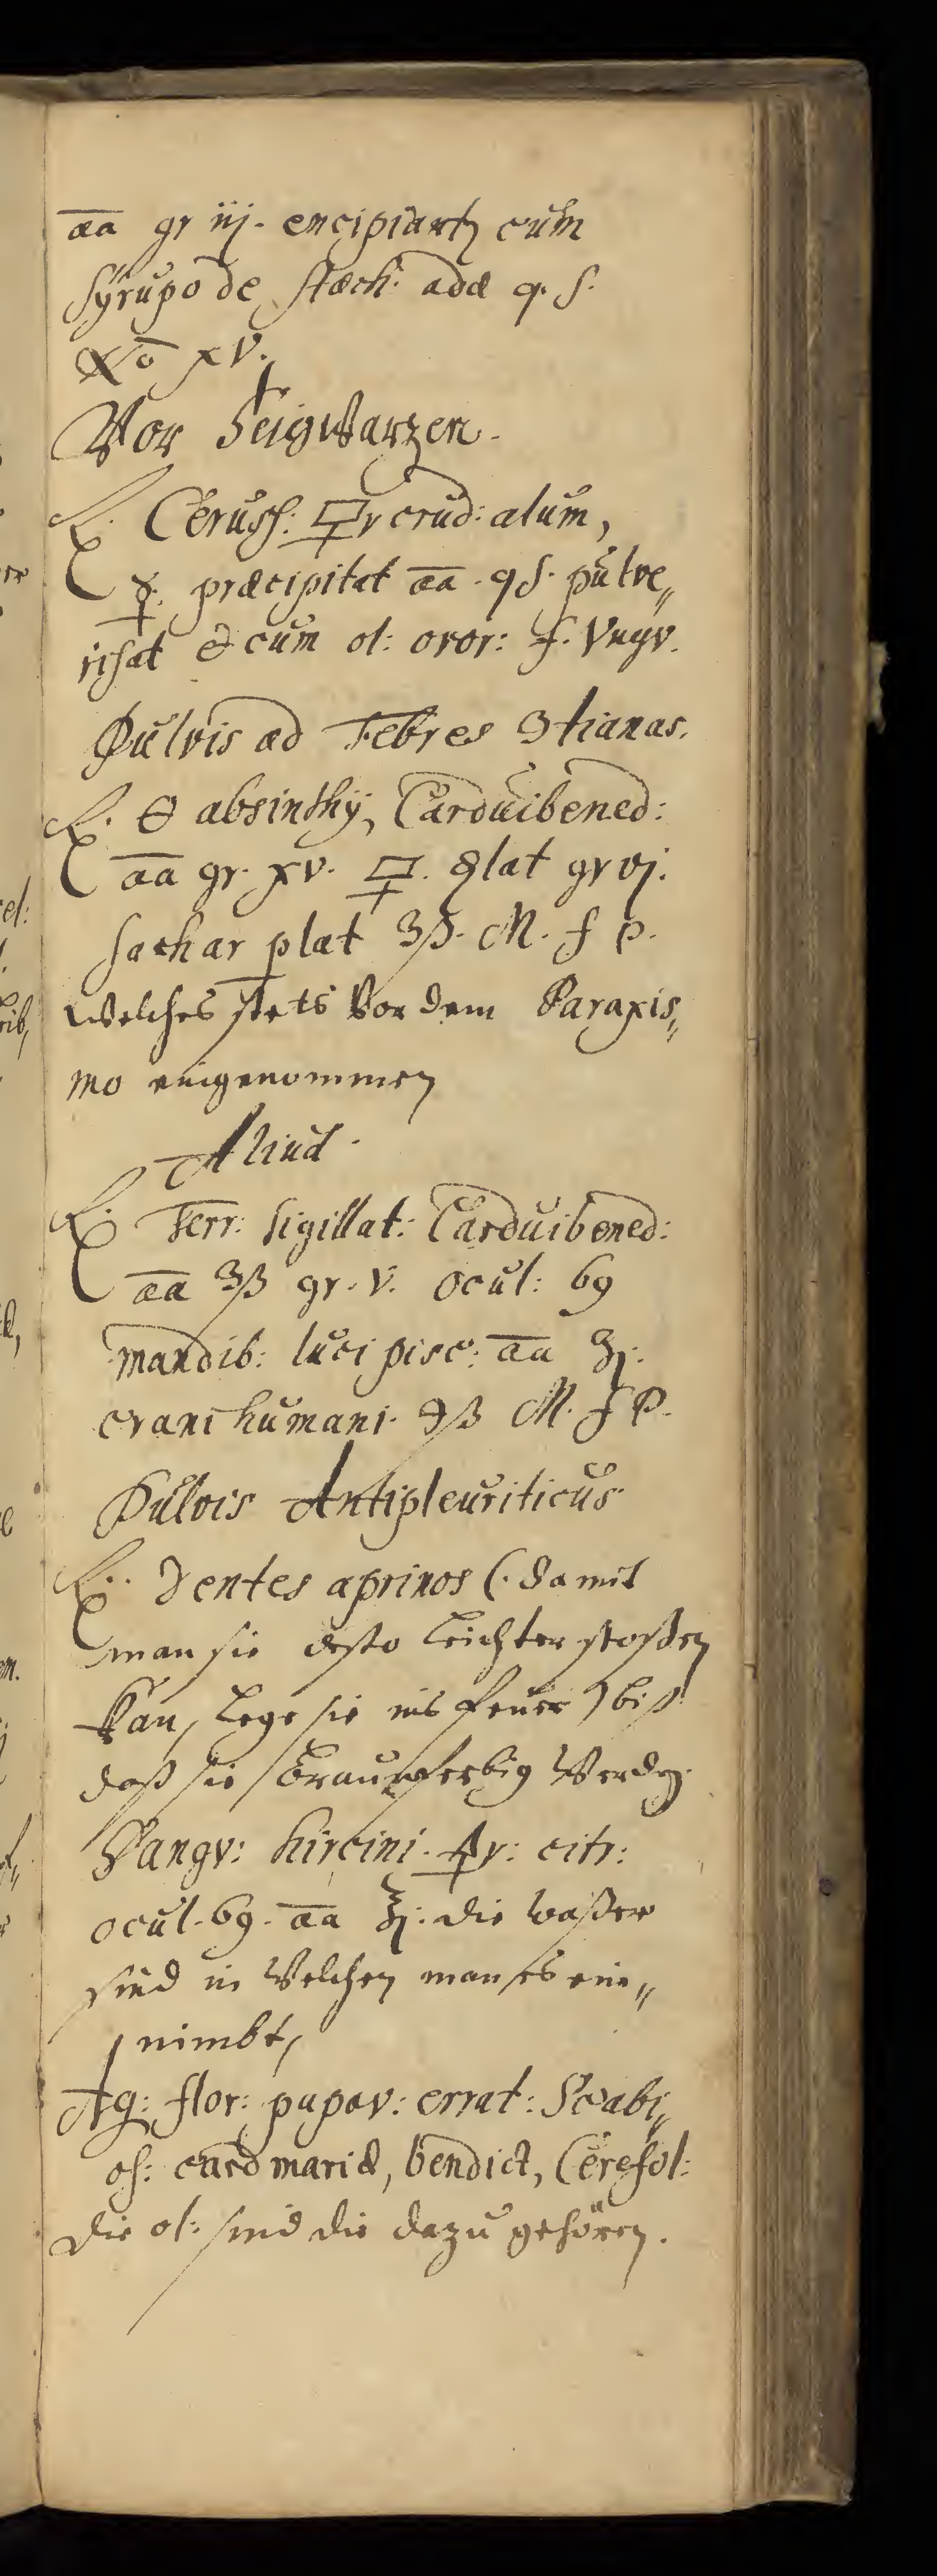 āā gr iij. encipiantʒ cum
Syrupo de stœch: adæ q. s.
No xv.
Vor Feigwarzen.
℞. Ceruss: 🜿r crud: alum,
☿. præcipitat āā. qs. pulve„
risat & cum ol: ovor: f. Vngv.
Pulvis ad Febres 3tianas.
℞. 🜔 absinthÿ, Carduibened:
āā gr. xv. 🜿. 🜖lat gr vj.
Sachar plat ʒß. M. f P.
welches stets vor dem Paraxis„
mo eingenommen
Aliud.
℞ Terr: sigillat: Carduibened:
āā ʒß gr. v. ocul: 69
mandib: luci pisc: āā ʒj.
crani humani. ℈ß M. f P.
Pulvis Antipleuriticus
℞. Dentes aprinos (. damit
man sie desto leichter stoßen
kan, lege sie ins feuer) biß
daß sie braunferbig werden.
Sangv: hircini. 🜍r: citr:
ocul. 69. āā ʒj: die waßer
sind in welchen man es ein„
nimbt,
Aq: flor: papav: errat: Scabi„
os: card mariæ, bendict, Cerefol:
die ol: sind die dazu gehören.